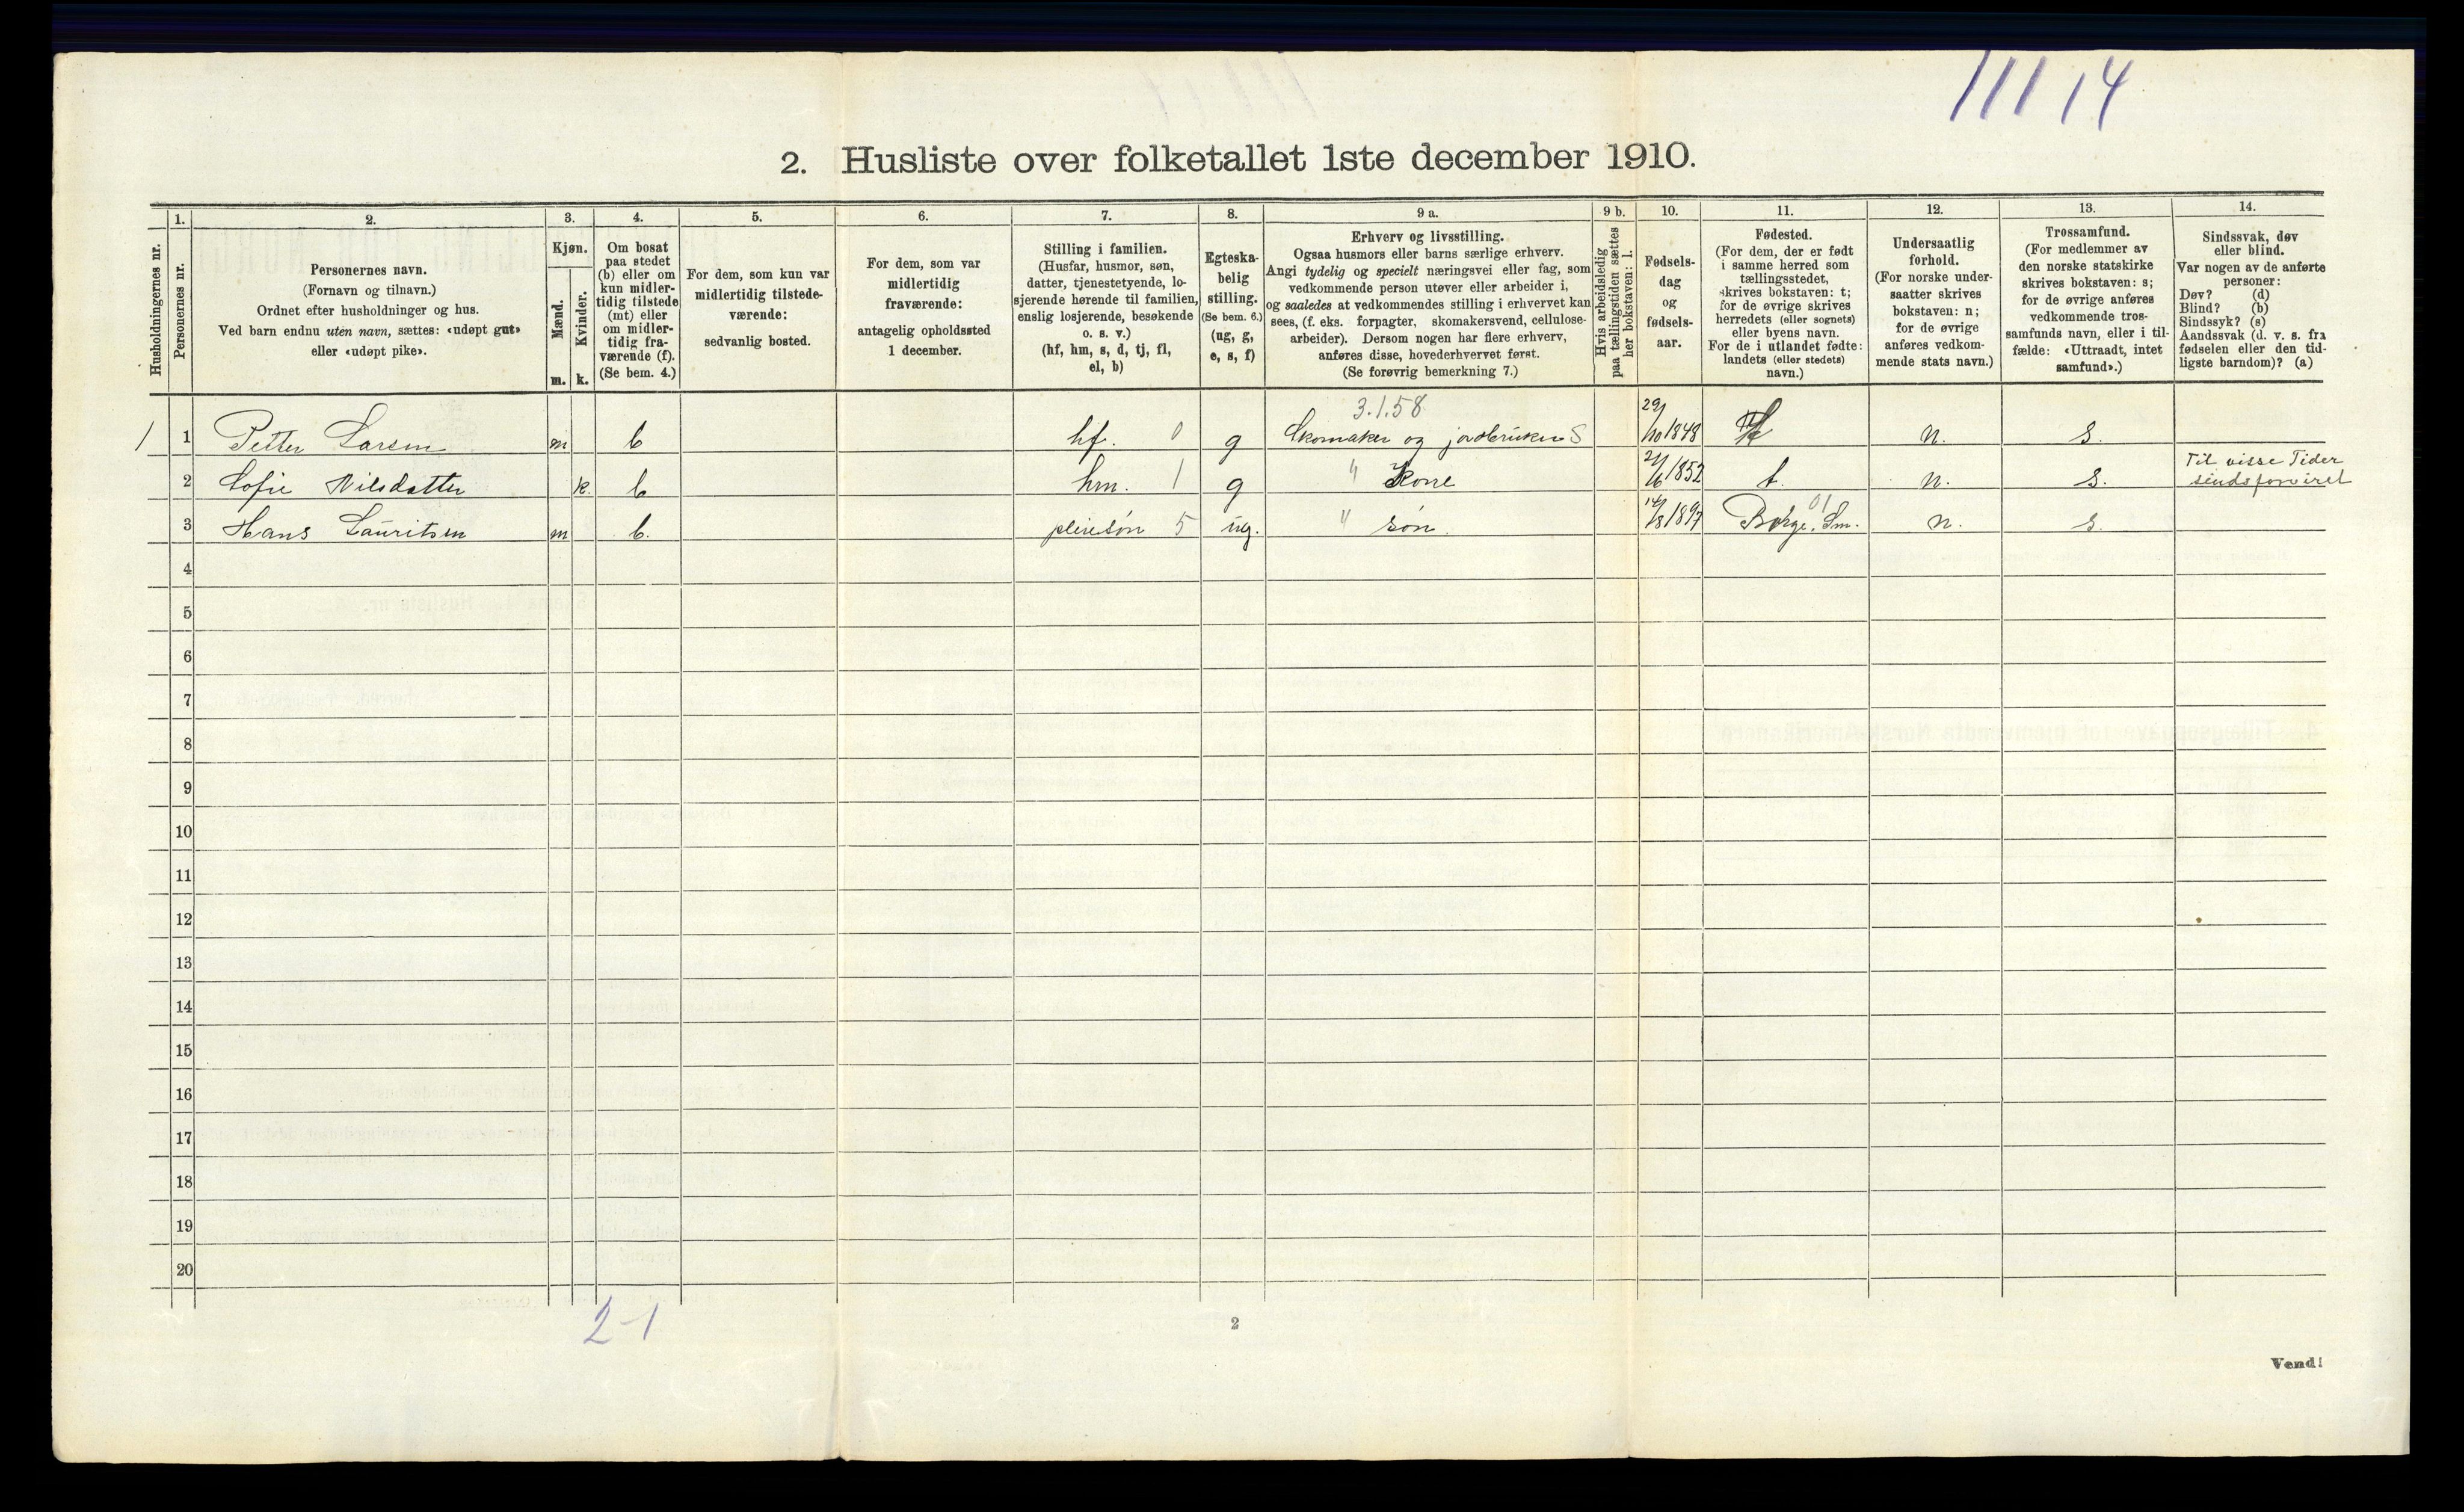 11114
2. Husliste over folketallet 1ste december 1910.
Husholdningernes nr.
1.
Personernes nr.
2.
Personernes navn.
(Fornavn og tilnavn.)
Ordnet efter husholdninger og hus.
Ved barn endnu uten navn, sættes: «udøpt gut»
eller «udøpt pike».
3.
Kjøn.
Mænd.
m.
Kvinder.
k.
4.
Om bosat
paa stedet
(b) eller om
kun midler-
tidig tilstede
(mt) eller
om midler-
tidig fra-
værende (f).
(Se bem. 4.)
5.
For dem, som kun var
midlertidig tilstede-
værende:
sedvanlig bosted.
6.
For dem, som var
midlertidig
fraværende:
antagelig opholdssted
1 december.
7.
Stilling i familien.
(Husfar, husmor, søn,
datter, tjenestetyende, lo-
sjerende hørende til familien,
enslig losjerende, besøkende
o. s. v.)
(hf, hm, s, d, tj, fl,
el, b)
8.
Egteska-
belig
stilling.
(Se bem. 6.)
(ug, g,
e, s, f)
9 a.
Erhverv og livsstilling.
Ogsaa husmors eller barns særlige erhverv.
Angi tydelig og specielt næringsvei eller fag, som
vedkommende person utøver eller arbeider i,
og saaledes at vedkommendes stilling i erhvervet kan
sees, (f. eks. forpagter, skomakersvend, cellulose-
arbeider). Dersom nogen har flere erhverv,
anføres disse, hovederhvervet først.
(Se forøvrig bemerkning 7.)
9 b.
Hvis arbeidsledig
paa tællingstiden sættes
her bokstaven: l.
10.
Fødsels-
dag
og
fødsels-
aar.
11.
Fødested.
(For dem, der er født
i samme herred som
tællingsstedet,
skrives bokstaven: t;
for de øvrige skrives
herredets (eller sognets)
eller byens navn.
For de i utlandet fødte:
landets (eller stedets)
navn.)
12.
Undersaatlig
forhold.
(For norske under-
saatter skrives
bokstaven: n;
for de øvrige
anføres vedkom-
mende stats navn.)
13.
Trossamfund.
(For medlemmer av
den norske statskirke
skrives bokstaven: s;
for de øvrige anføres
vedkommende tros-
samfunds navn, eller i til-
fælde: «Uttraadt, intet
samfund».)
14.
Sindssvak, døv
eller blind.
Var nogen av de anførte
personer:
Døv? (d)
Blind? (b)
Sindssyk? (s)
Aandssvak (d. v. s. fra
fødselen eller den tid-
ligste barndom)? (a)
3.1.58
1 1 Petter Larsen m b hf. 0 g Skomaker og jordbruker S 29/10 1848 t n. s.
2 Sofie Nilsdatter k. b hm. 1 g " Kone 21/6 1852 t. n. s. Til visse Tider
sindsforvirret
3 Hans Lauritsen m b. pleiesøn 5 ug. " søn. 14/8 1897 Borge. Sm. 01 n. s.
4
5
6
7
8
9
10
11
12
13
14
15
16
17
18
19
20
2-1
2
Vend!